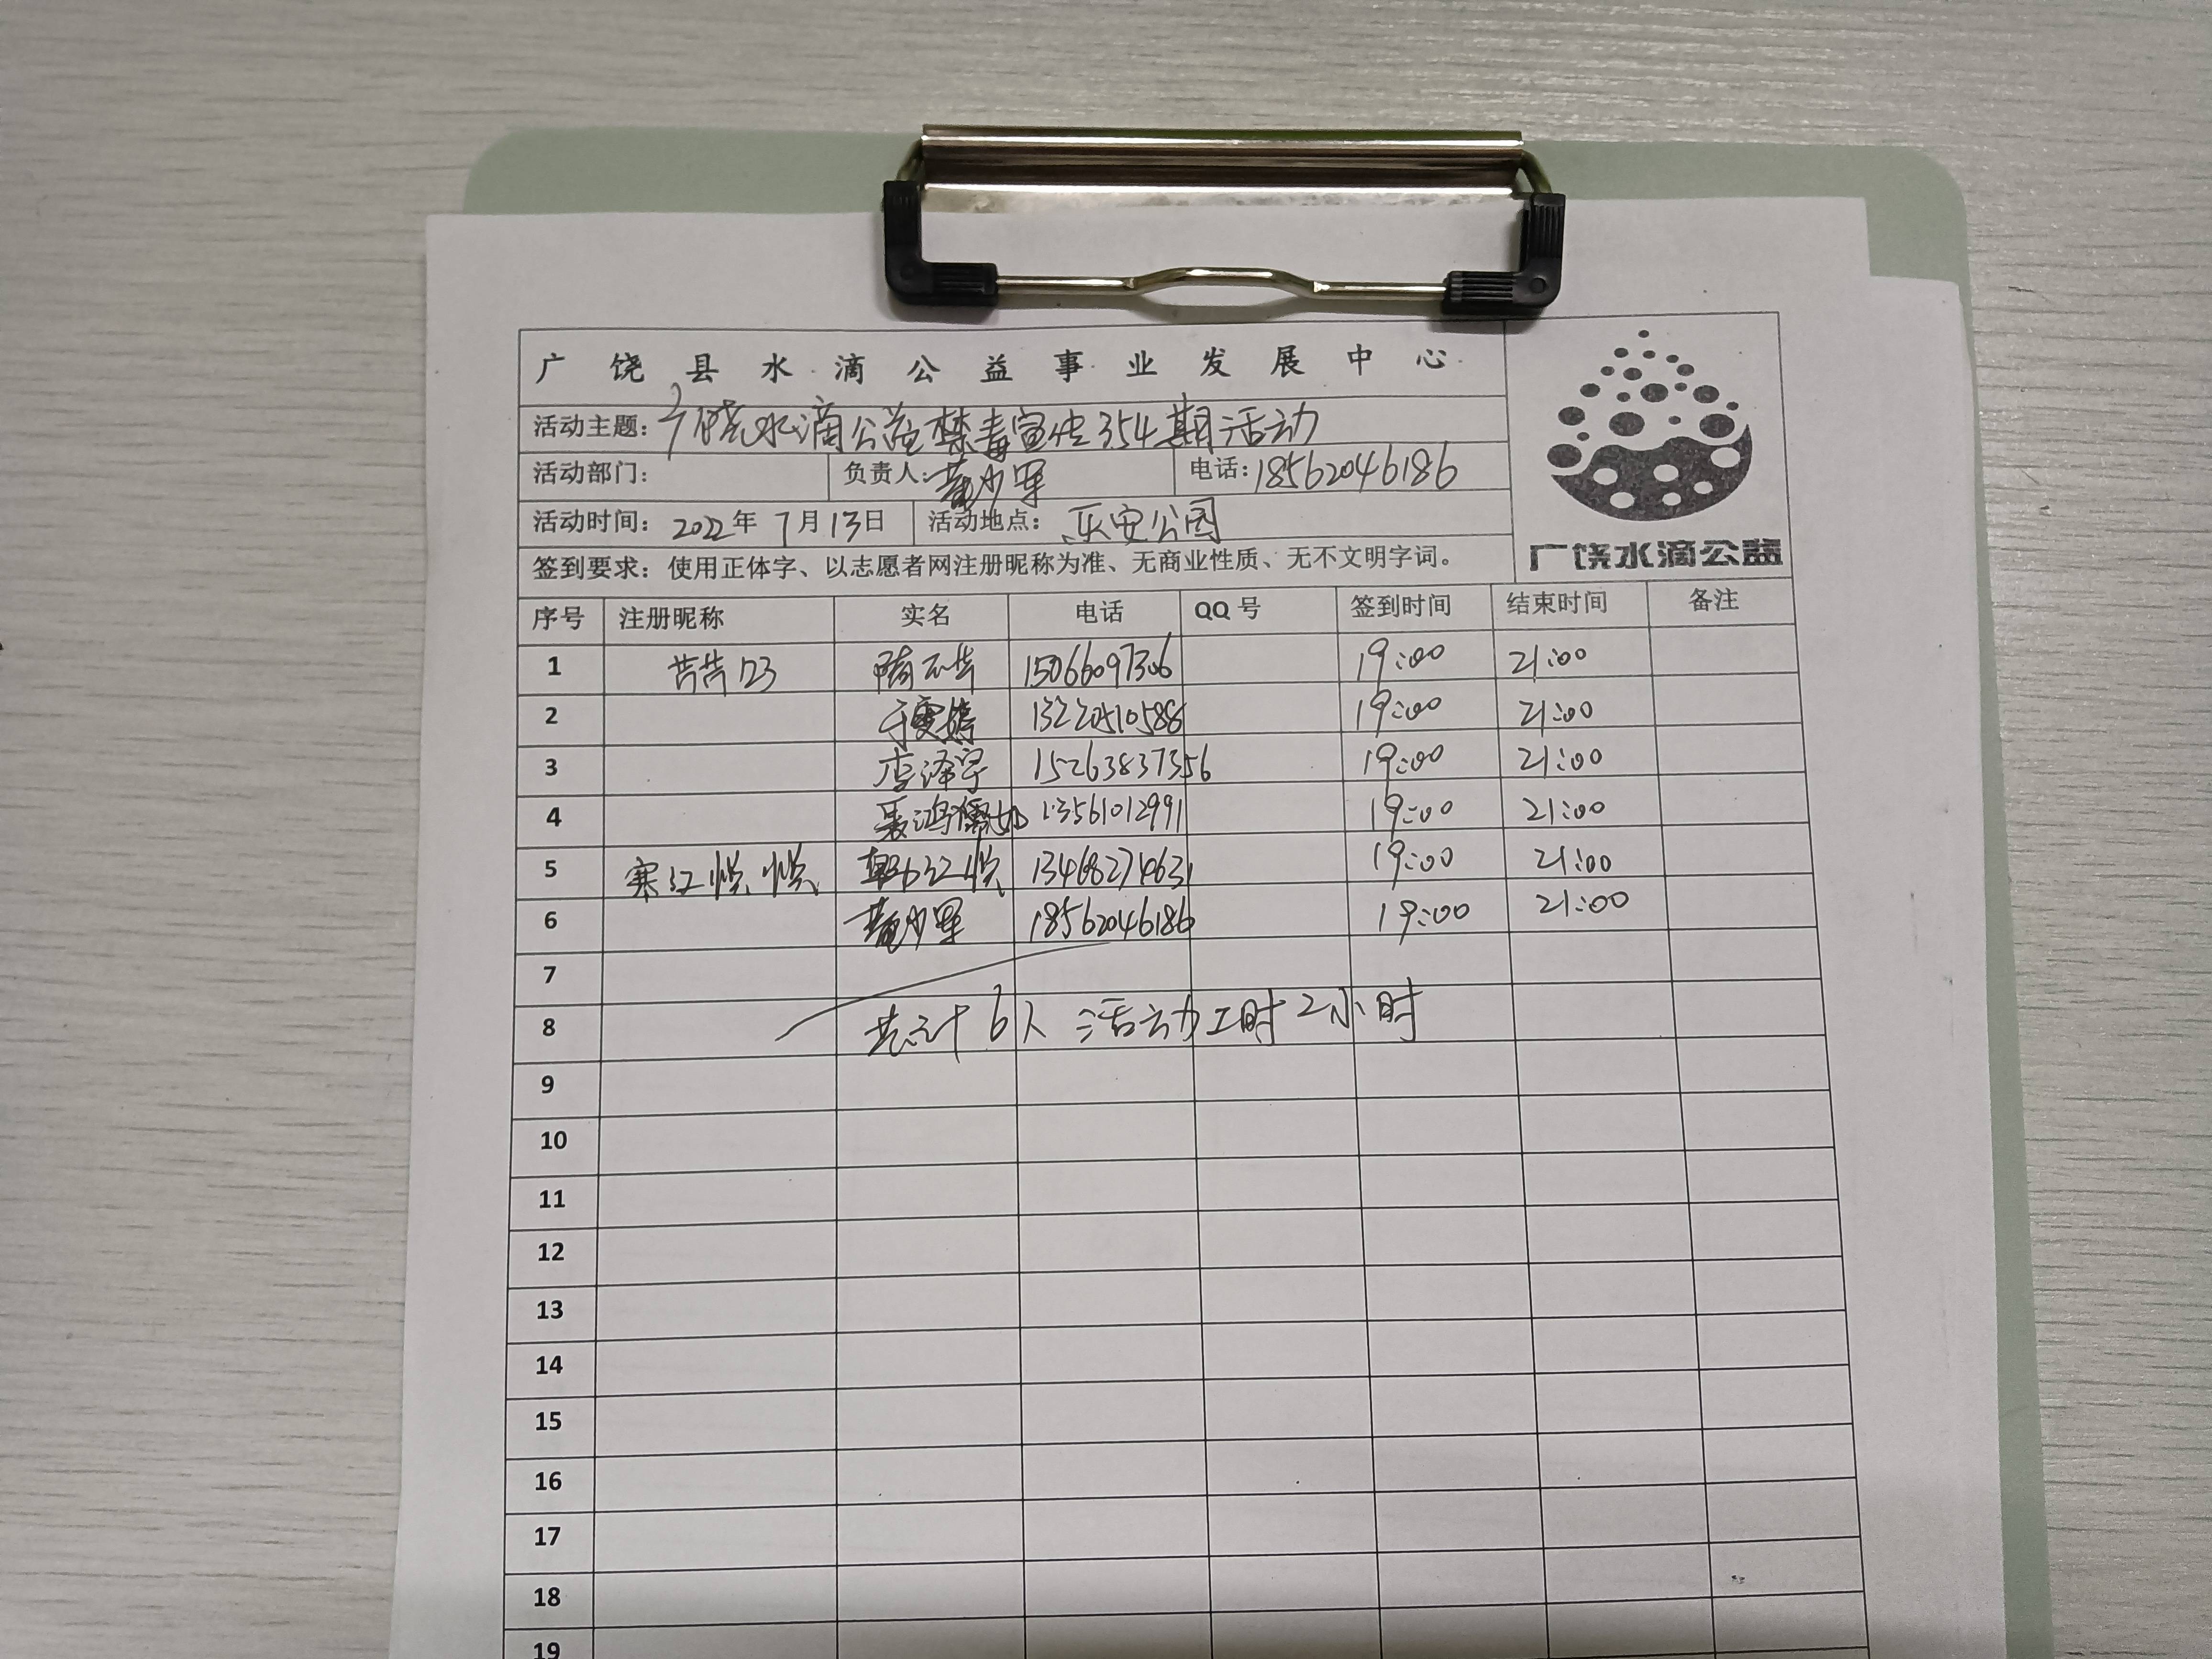 广饶县水滴公益事业发展中心
活动主题：广饶水滴公益禁毒宣传354期活动
活动部门： 负责人： 电话：18562046186
活动时间：2022年7月13日 活动地点：乐安公园
签到要求：使用正体字、以志愿者网注册昵称为准、无商业性质、无不文明字词。
广饶水滴公益
序号 注册昵称 实名 电话 QQ号 签到时间 结束时间 备注
1 苦苦123 15066097306 19:00 21:00
2 13220510588 19:00 21:00
3 李泽宇 15263837356 19:00 21:00
4 聂鸿儒 13561012991 19:00 21:00
5 寒江悦悦 韩江悦 13468274631 19:00 21:00
6 18562046186 19:00 21:00
7
8 共计6人 活动工时2小时
9
10
11
12
13
14
15
16
17
18
19